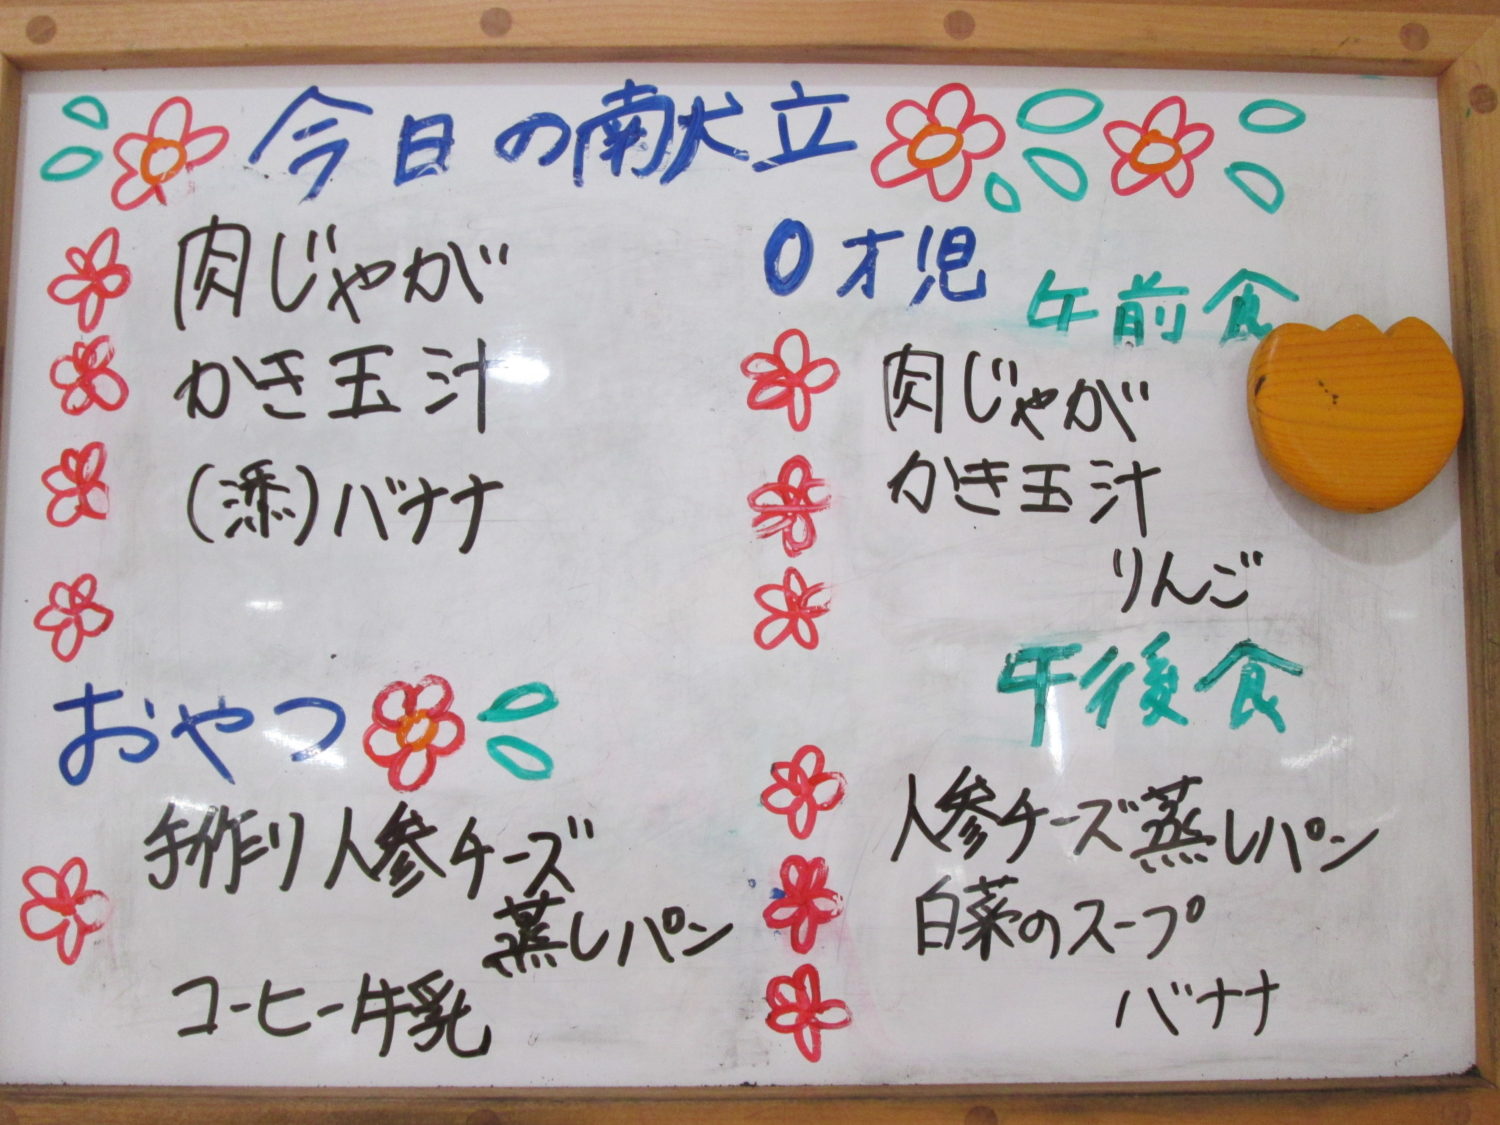 今日の献立
肉じゃが
かき玉汁
(添)バナナ
おやつ
手作り人参チーズ
蒸しパン
コーヒー牛乳
0才児
午前食
肉じゃが
かき玉汁
りんご
午後食
人参チーズ蒸しパン
白菜のスープ
バナナ